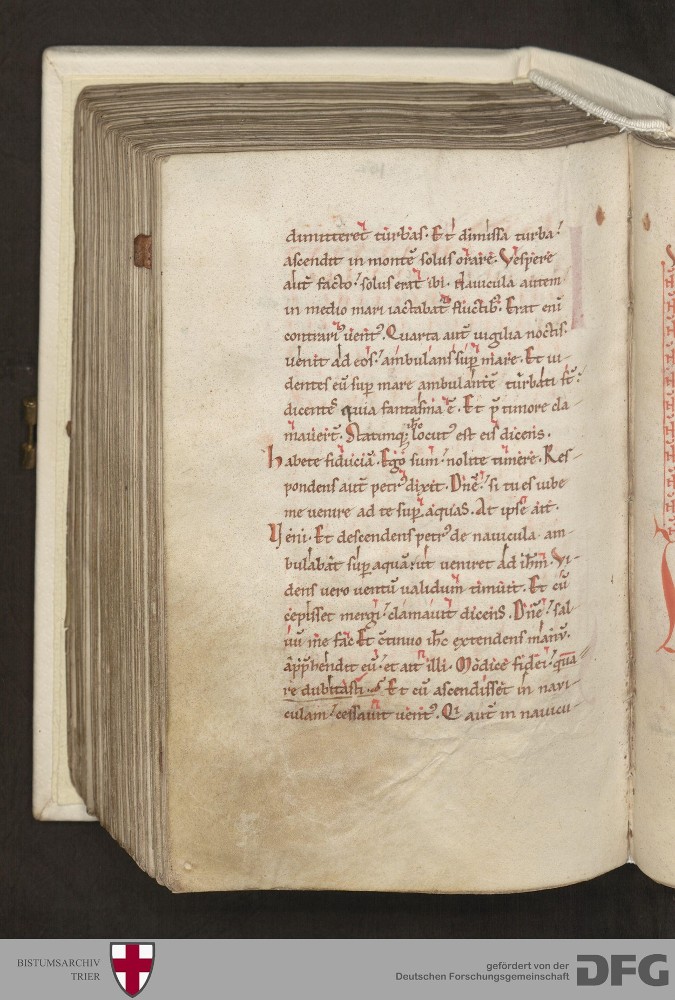 dimitteret turbas. Et dimissa turba
ascendit in montē solus orare. Vespere
aut̄ facto solus erat ibi. Navicula autem
in medio mari iactabat᷒ fluctib᷒. Erat enī
contrari᷒ vent᷒. Quarta aut̄ vigilia noctis.
venit ad eos ambulans sup̄ mare. Et vi-
dentes eū sup̄ mare ambulantē turbati s̄t.
dicentes quia fantasma ē. Et p̄ timore cla-
maver̄t. Statimq; ih̄c locut᷒ est eis dicens.
habete fiduciā. Ego sum nolite timere. Res-
pondens aut̄ petr᷒ dixit. Dn̄e si tu es iube
me venire ad te sup̄ aquas. At ipse ait.
Veni. Et descendens petr᷒ de navicula am-
bulabat sup̄ aquā ut veniret ad ih̄m. Vi-
dens vero ventū validum timuit. Et cū
cepisset mergi clamavit dicens. Dn̄e sal-
vū me fac. Et c̄tinuo ih̄c extendens manū.
app̄hendit eū. et ait illi. Modice fidei quā
re dubitasti. Et cū ascendisset in navi-
culam cessavit vent᷒. Qi aut̄ in navicu-
BISTUMSARCHIV
TRIER
gefördert von der
Deutschen Forschungsgemeinschaft
DFG